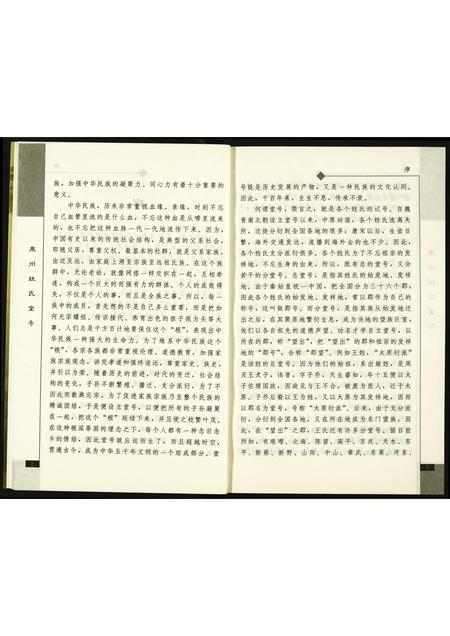 族，加强中华民族的凝聚力、同心力有着十分重要的
意义。
中华民族，历来非常重视血缘、亲缘，时刻不忘
自己血管里流的是什么血，不忘这种血是从哪里流来
的，也不忘把这种血脉一代一代地流传下来。因为，
中国有史以来的传统社会结构，是典型的父系社会，
即随父居、尊重父权。最基本的社群，就是父系家族，
由近及远，由家庭上溯至宗族至远祖氏族。在这个族
群中，无论老幼，就像网络一样交织在一起，互相牵
连，构成一个巨大的而强有力的群体。个人的成败得
失，不仅是个人的事，而且是全族之事。所以，每一
族中的成员，首先想的不是自己多么重要，而是把如
何光宗耀祖、传宗接代、养育出色的孩子视为头等大
事。人们总是千方百计地要保住这个“根”，表现出中
华民族一种强大的生命力。为了维系中华民族这个
“根”，各宗各族都非常重视伦理、道德教育，加强家
族宗族观念，讲究孝道和慎终追远，尊重家史、族史，
并引以为荣。随着历史的前进，时代的变迁，社会结
构的变化，子孙不断繁殖、播迁、支分派衍，为了不
因此而数典忘宗，为了促进家族宗族乃至整个民族的
精诚团结，于是便设立堂号，以便把所有的子孙凝聚
在一起，把这个“根”延续下来，并且使之枝繁叶茂。
在这种根深蒂固的理念之下，每个人都有一种念旧念
乡的情结，因此堂号就应运而生了，而且超越时空，
贯通古今，成为中华五千年文明的一个组成部分。堂
泉州姓氏堂号
序
号既是历史发展的产物，又是一种民族的文化认同。
因此，千百年来，生生不息，传承不衰。
何谓堂号，简言之，就是各个姓氏的记号。自我
晋南北朝设立堂号以来，中原动荡，各个姓氏流离失
所，迁徙分衍到全国各地的很多；唐宋以后，生齿日
繁，海外交通发达，流播到海外去的也不少。因此，
各个姓氏支分派衍很多。各个姓氏为了不忘祖宗的发
祥地，不忘生身的由来，所以，既有总的堂号，又分
若干的分堂号。总堂号，是指某姓氏的始发地、发祥
地。由于秦始皇统一中国，把全国分为三十六个郡，
因此各个姓氏的始发地、发祥地，常以郡作为自己的
称号，这叫做郡号。而分堂号，是指其族从始发地迁
出之后，在其聚居地繁衍生息，成为当地的望族巨室，
他们以各自祖先的道德声望、功名才学自立堂号，以
所在的郡，称“望出”，把“望出”的郡和祖宗的发祥
地的“郡号”，合称“郡望”。例如王姓，“太原衍派”
是该姓的总堂号，因为他们的始祖，系出姬姓，是周
灵王太子，讳晋，字子乔，天生睿知，年十五便以太
子佐理国政，因谏见与王不合，被废为庶人，迁于太
原。子乔后裔以王为姓，又以太原为其发祥地，因而
以郡名为堂号，称“太原衍派”。后来，由于支分派
衍，分衍到全国各地，又在所在地成为名门望族，因
此，在“望出”之郡，王氏还有许多分堂号，据目前
所知，有琅琊、北海、陈留、高平、京兆、天水、东
平、新蔡、新野、山阳、中山、章武、东莱、河东、